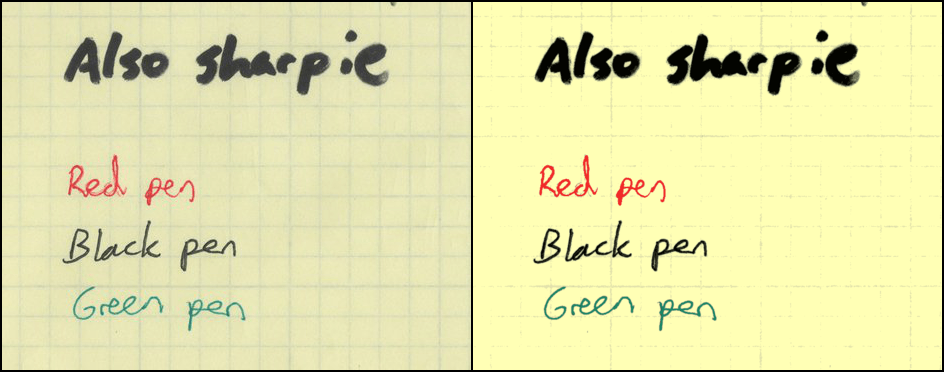 Also sharpie
Red pen
Black pen
Green pen
Also sharpie
Red pen
Black pen
Green pen